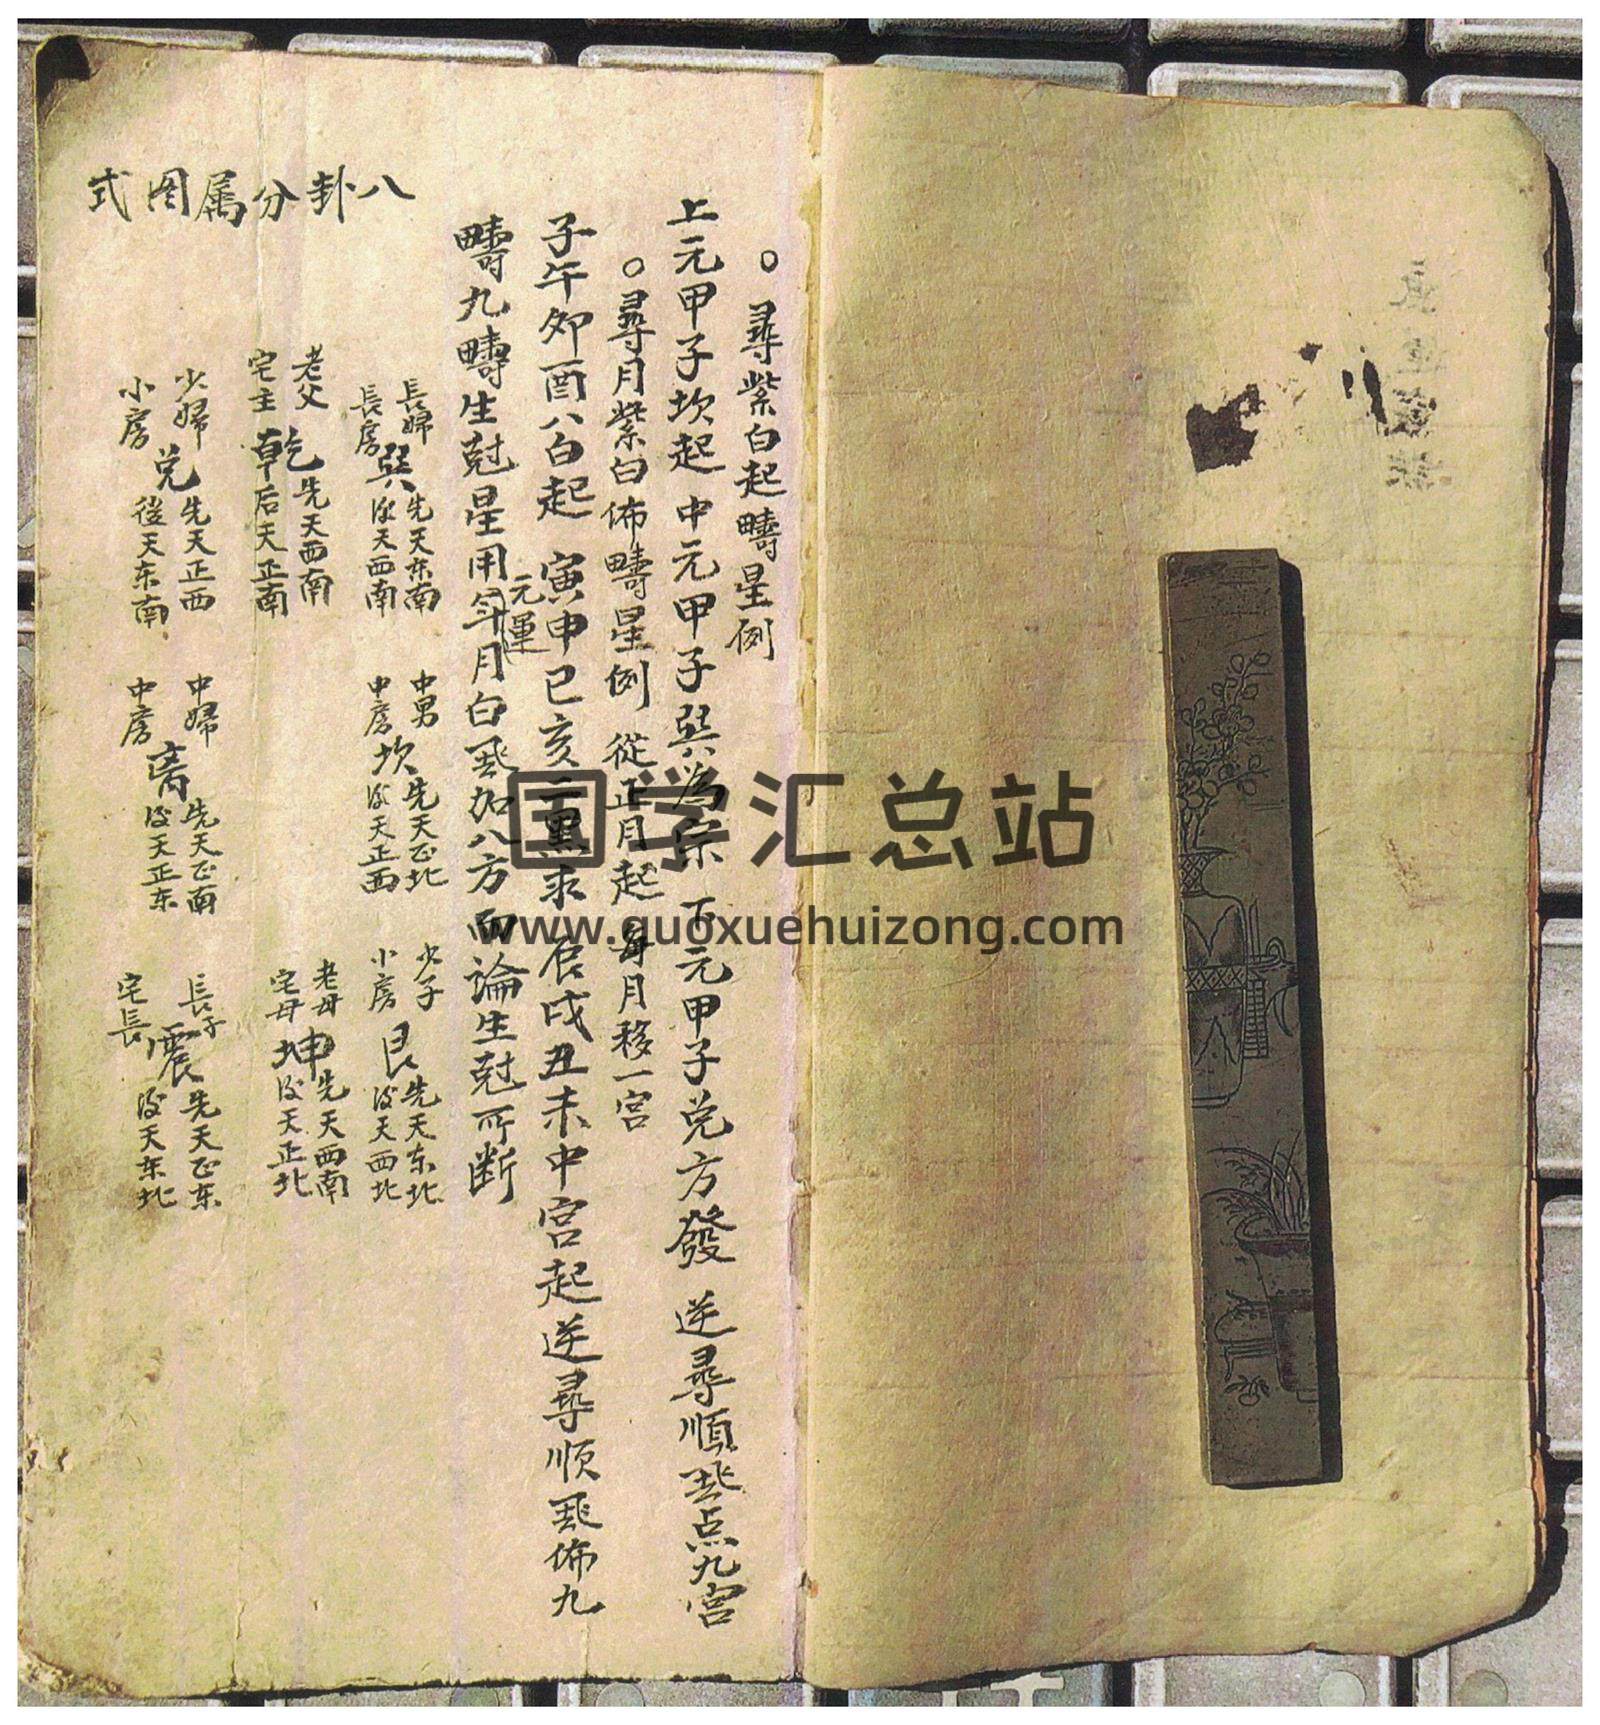 ○尋紫白起疇星例
上元甲子坎起 中元甲子巽為宗 下元甲子兌方發 逆尋順飛点九宮
○尋月紫白佈疇星例 從正月起 每月移一宮
子午卯酉八白起 寅申巳亥二黑求 辰戌丑未中宮起逆尋順飛佈九
疇九疇生尅星用年月白飛加八方而論生尅所断
元運
八卦分属图式
長婦
長房
巽
先天东南
後天西南
中男
中房
坎
先天正北
后天正西
少子
小房
艮
先天东北
后天西北
老父
宅主
乾
先天西南
后天正南
老母
宅母
坤
先天西南
后天正北
少婦
小房
兌
先天正西
後天东南
中婦
中房
离
先天正南
后天正东
長子
宅長
震
先天正东
后天东北
国学汇总站
www.guoxuehuizong.com